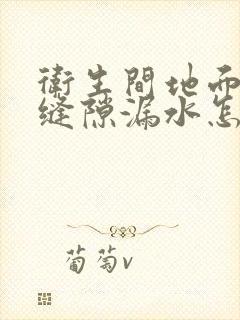 衛生間地面
缝隙漏水怎
葡萄v